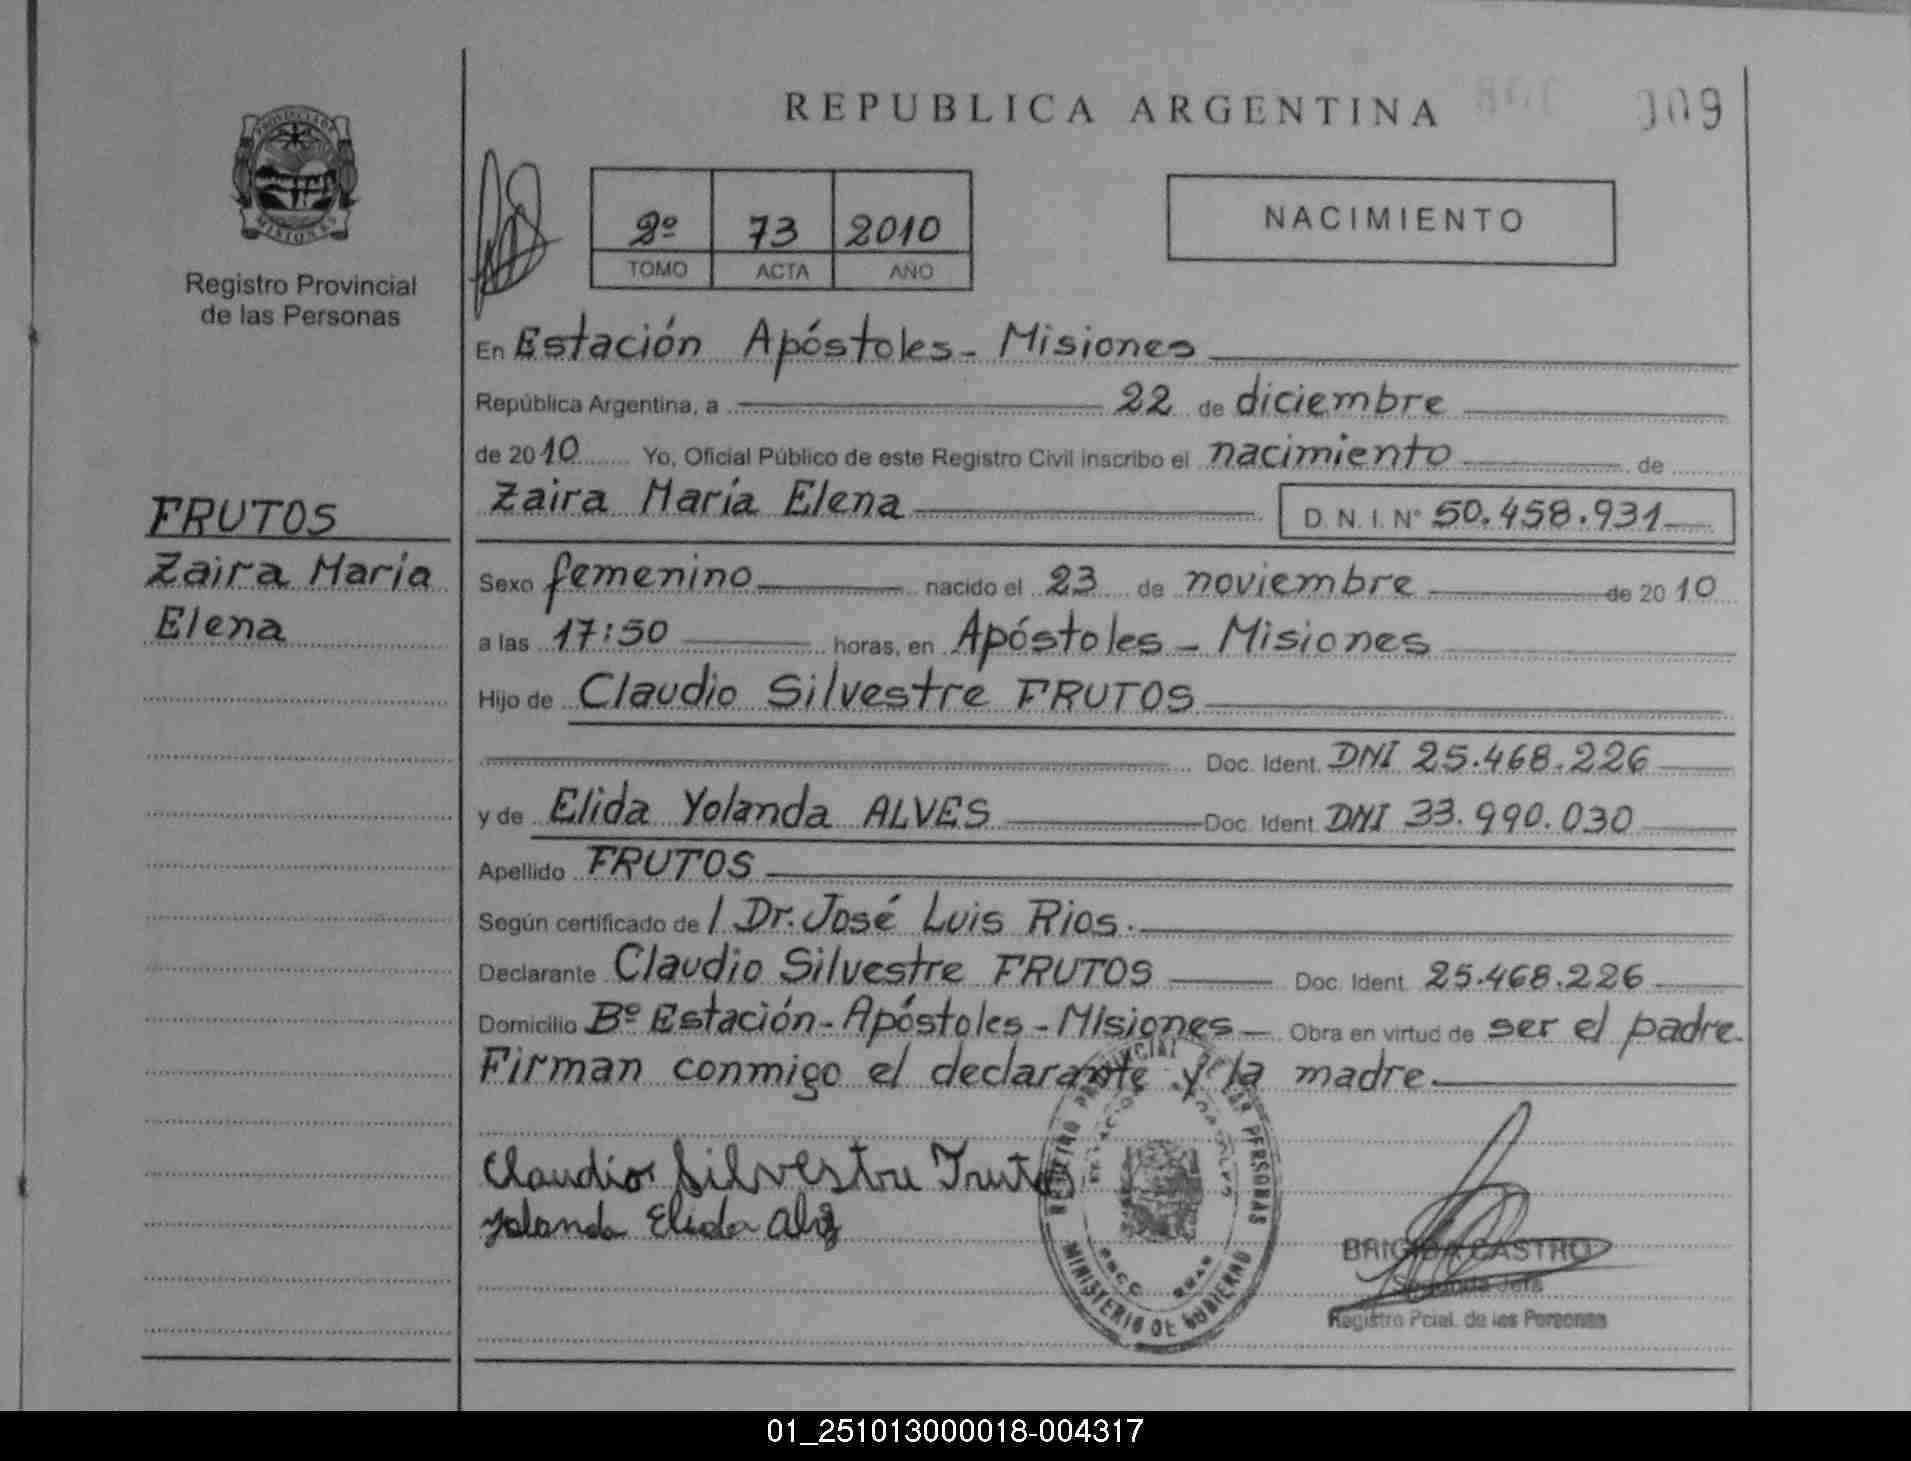 REPUBLICA ARGENTINA
009
PROVINCIA DE
MISIONES
Registro Provincial
de las Personas
2º 73 2010
TOMO ACTA AÑO
NACIMIENTO
En Estación Apóstoles - Misiones
República Argentina, a 22 de diciembre
de 2010 Yo, Oficial Público de este Registro Civil inscribo el nacimiento de
Zaira María Elena D. N. I. Nº 50.458.931
FRUTOS
Zaira María
Elena
Sexo femenino nacido el 23 de noviembre de 2010
a las 17:50 horas, en Apóstoles - Misiones
Hijo de Claudio Silvestre FRUTOS
Doc. Ident. DNI 25.468.226
y de Elida Yolanda ALVES Doc. Ident. DNI 33.990.030
Apellido FRUTOS
Según certificado de / Dr. José Luis Rios.
Declarante Claudio Silvestre FRUTOS Doc. Ident. 25.468.226
Domicilio Bº Estación - Apóstoles - Misiones Obra en virtud de ser el padre.
Firman conmigo el declarante y la madre.
Claudio Silvestre Frutos
Yolanda Elida
REGISTRO PROVINCIAL DE LAS PERSONAS
MINISTERIO DE GOBIERNO
BRIGIDA CASTRO
Segunda Jefa
Registro Pcial. de las Personas
01_251013000018-004317